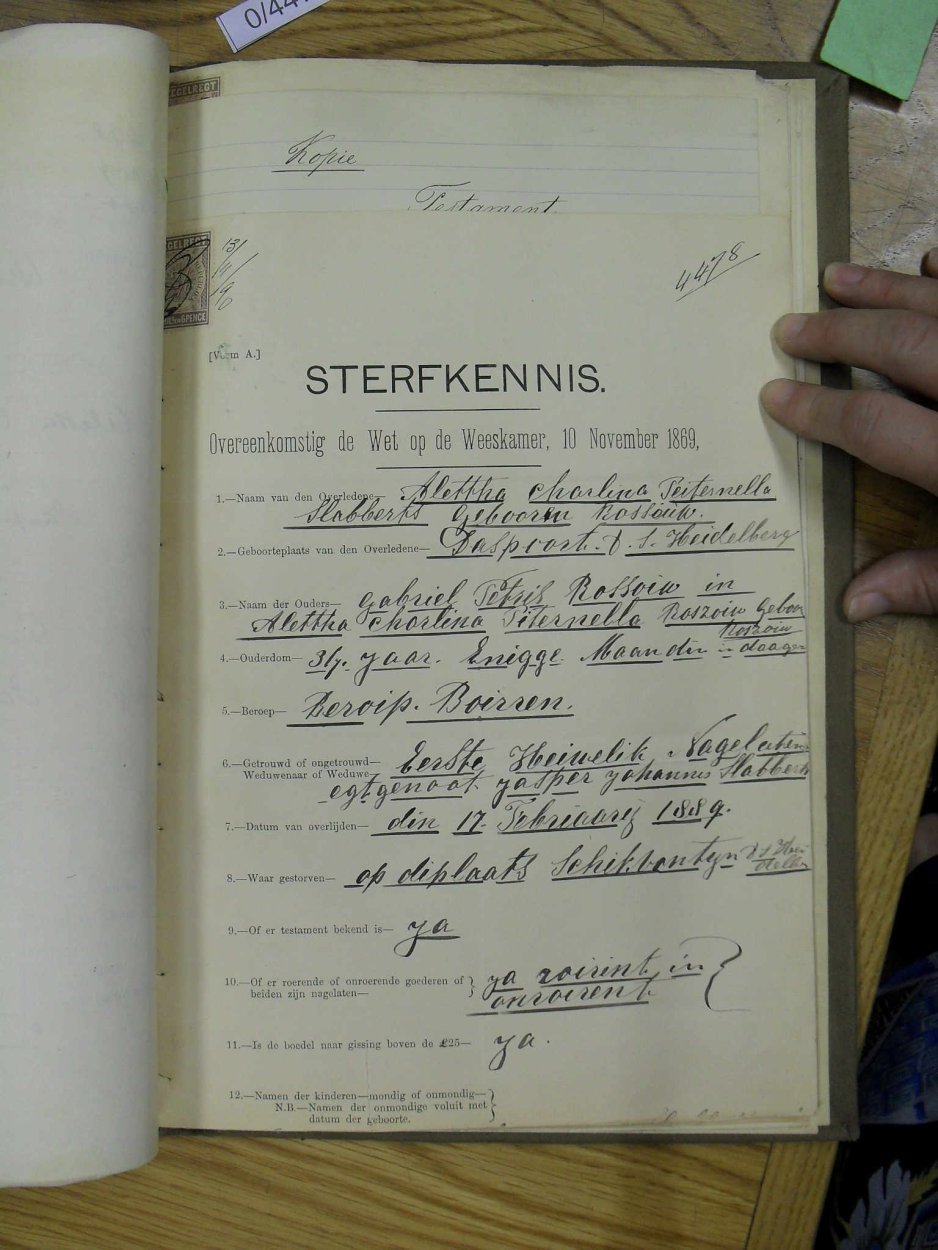 0/44
ZEGELREGT
Kopie
Testament
ZEGELREGT
13/
9/
96
4478
6 PENCE
[Vorm A.]
STERFKENNIS.
Overeenkomstig de Wet op de Weeskamer, 10 November 1869,
1.—Naam van den Overledene— Alettha Charlina Peiternella
Slabberts Geboorin Rossouw.
2.—Geboorteplaats van den Overledene— Daspoort. D. S. Heidelberg
3.—Naam der Ouders— Gabriel Petris Rossoiw in
Alettha Charlina Piternella Roszoiw Geboor
Roszoiw
4.—Ouderdom— yaar. Enigge Maandin in daagen
5.—Beroep— Beroip. Boirren.
6.—Getrouwd of ongetrouwd— Eerste Heiwelik Nagelaten
Weduwenaar of Weduwe— egtgenoot Jasper Johannis Slabberts
7.—Datum van overlijden— din 17 Febriaarij 1889.
8.—Waar gestorven— op diplaats Schikvontyn D S Hei
delb
9.—Of er testament bekend is— ya
10.—Of er roerende of onroerende goederen of } ya roirint in }
beiden zijn nagelaten— onroirent
11.—Is de boedel naar gissing boven de £25— ya.
12.—Namen der kinderen—mondig of onmondig— }
N.B.—Namen der onmondige voluit met
datum der geboorte.